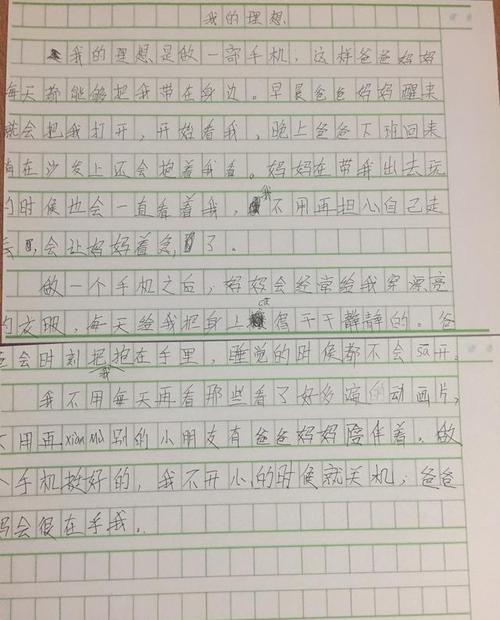 我的理想.
我的理想是做一部手机,这样爸爸妈妈
每天都能够把我带在身边。早晨爸爸妈妈醒来
就会把我打开,开始看我,晚上爸爸下班回来
在沙发上还会抱着我看。妈妈在带我出去玩
的时候也会一直看着我,我不用再担心自己走
丢,会让妈妈着急了。
做一个手机之后,妈妈会经常给我穿漂亮
的衣服,每天给我把身上擦得干干静静的。爸
爸会时刻把我抱在手里,睡觉的时候都不会sā开。
我不用每天再看那些看了好多遍的动画片,
不用再xiàn mù别的小朋友有爸爸妈妈陪伴着。做
个手机挺好的,我不开心的时候就关机,爸爸
妈会很在乎我.